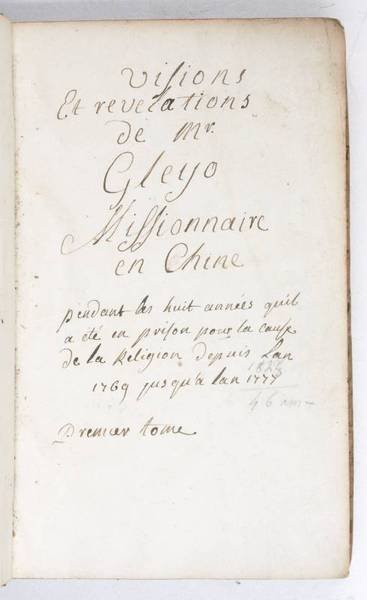 Visions
Et revelations
de Mr.
Gleyo
Missionnaire
en Chine
pendant les huit années qu'il
a été en prison pour la cause
de la Religion depuis Lan
1769 jusqu'a lan 1777
Premier tome